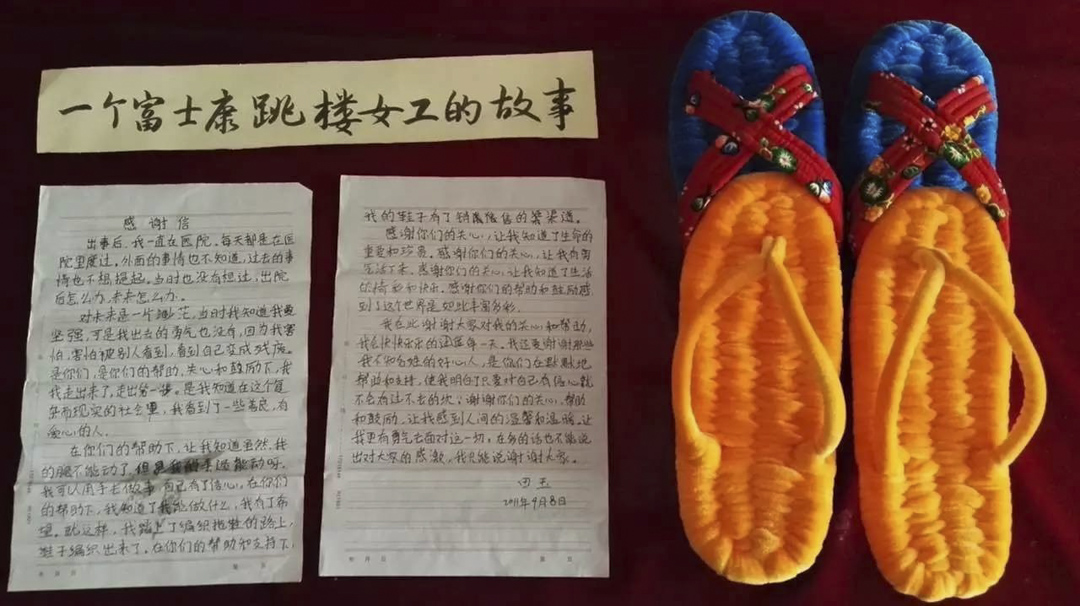 一个富士康跳楼女工的故事
感谢信
出事后,我一直在医院,每天都是在医
院里度过,外面的事情也不知道,过去的事
情也不想提起。当时也没有想过,出院
后怎么办,未来怎么办。
对未来是一片渺茫,当时我知道我要
坚强,可是我出去的勇气也没有,因为我害
怕,害怕被别人看到,看到自己变成残废。
是你们,是你们的帮助、关心和鼓励下,我
我走出来了,走出第一步。是我知道在这个复
杂而现实的社会里,我看到了一些善良,有
爱心的人。
在你们的帮助下,让我知道虽然,我
的腿不能动了,但是我的手还能动呀。
我可以用手去做事,自己有了信心,在你们
的帮助下,我知道了我能做什么,我有了希
望。就这样,我踏上了编织拖鞋的路上,
鞋子编织出来了。在你们的帮助和支持下,
我的鞋子有了销售的渠道。
感谢你们的关心,让我知道了生命的
重要和珍贵。感谢你们的关心,让我有勇
气活下来。感谢你们的关心,让我知道了生活
的精彩和快乐。感谢你们的帮助和鼓励感
到了这个世界是如此丰富多彩。
我在此谢谢大家对我的关心和帮助,
我会快快乐乐的过每一天。我还要谢谢那些
我不知名姓的好心人,是你们在默默地
帮助和支持,使我明白了只要对自己有信心就
不会有过不去的坎;谢谢你们的关心、帮助
和鼓励,让我感到人间的温馨和温暖,让
我更有勇气去面对这一切,在多的话也不能说
出对大家的感激,我只能说谢谢大家。
田玉
2011年9月8日